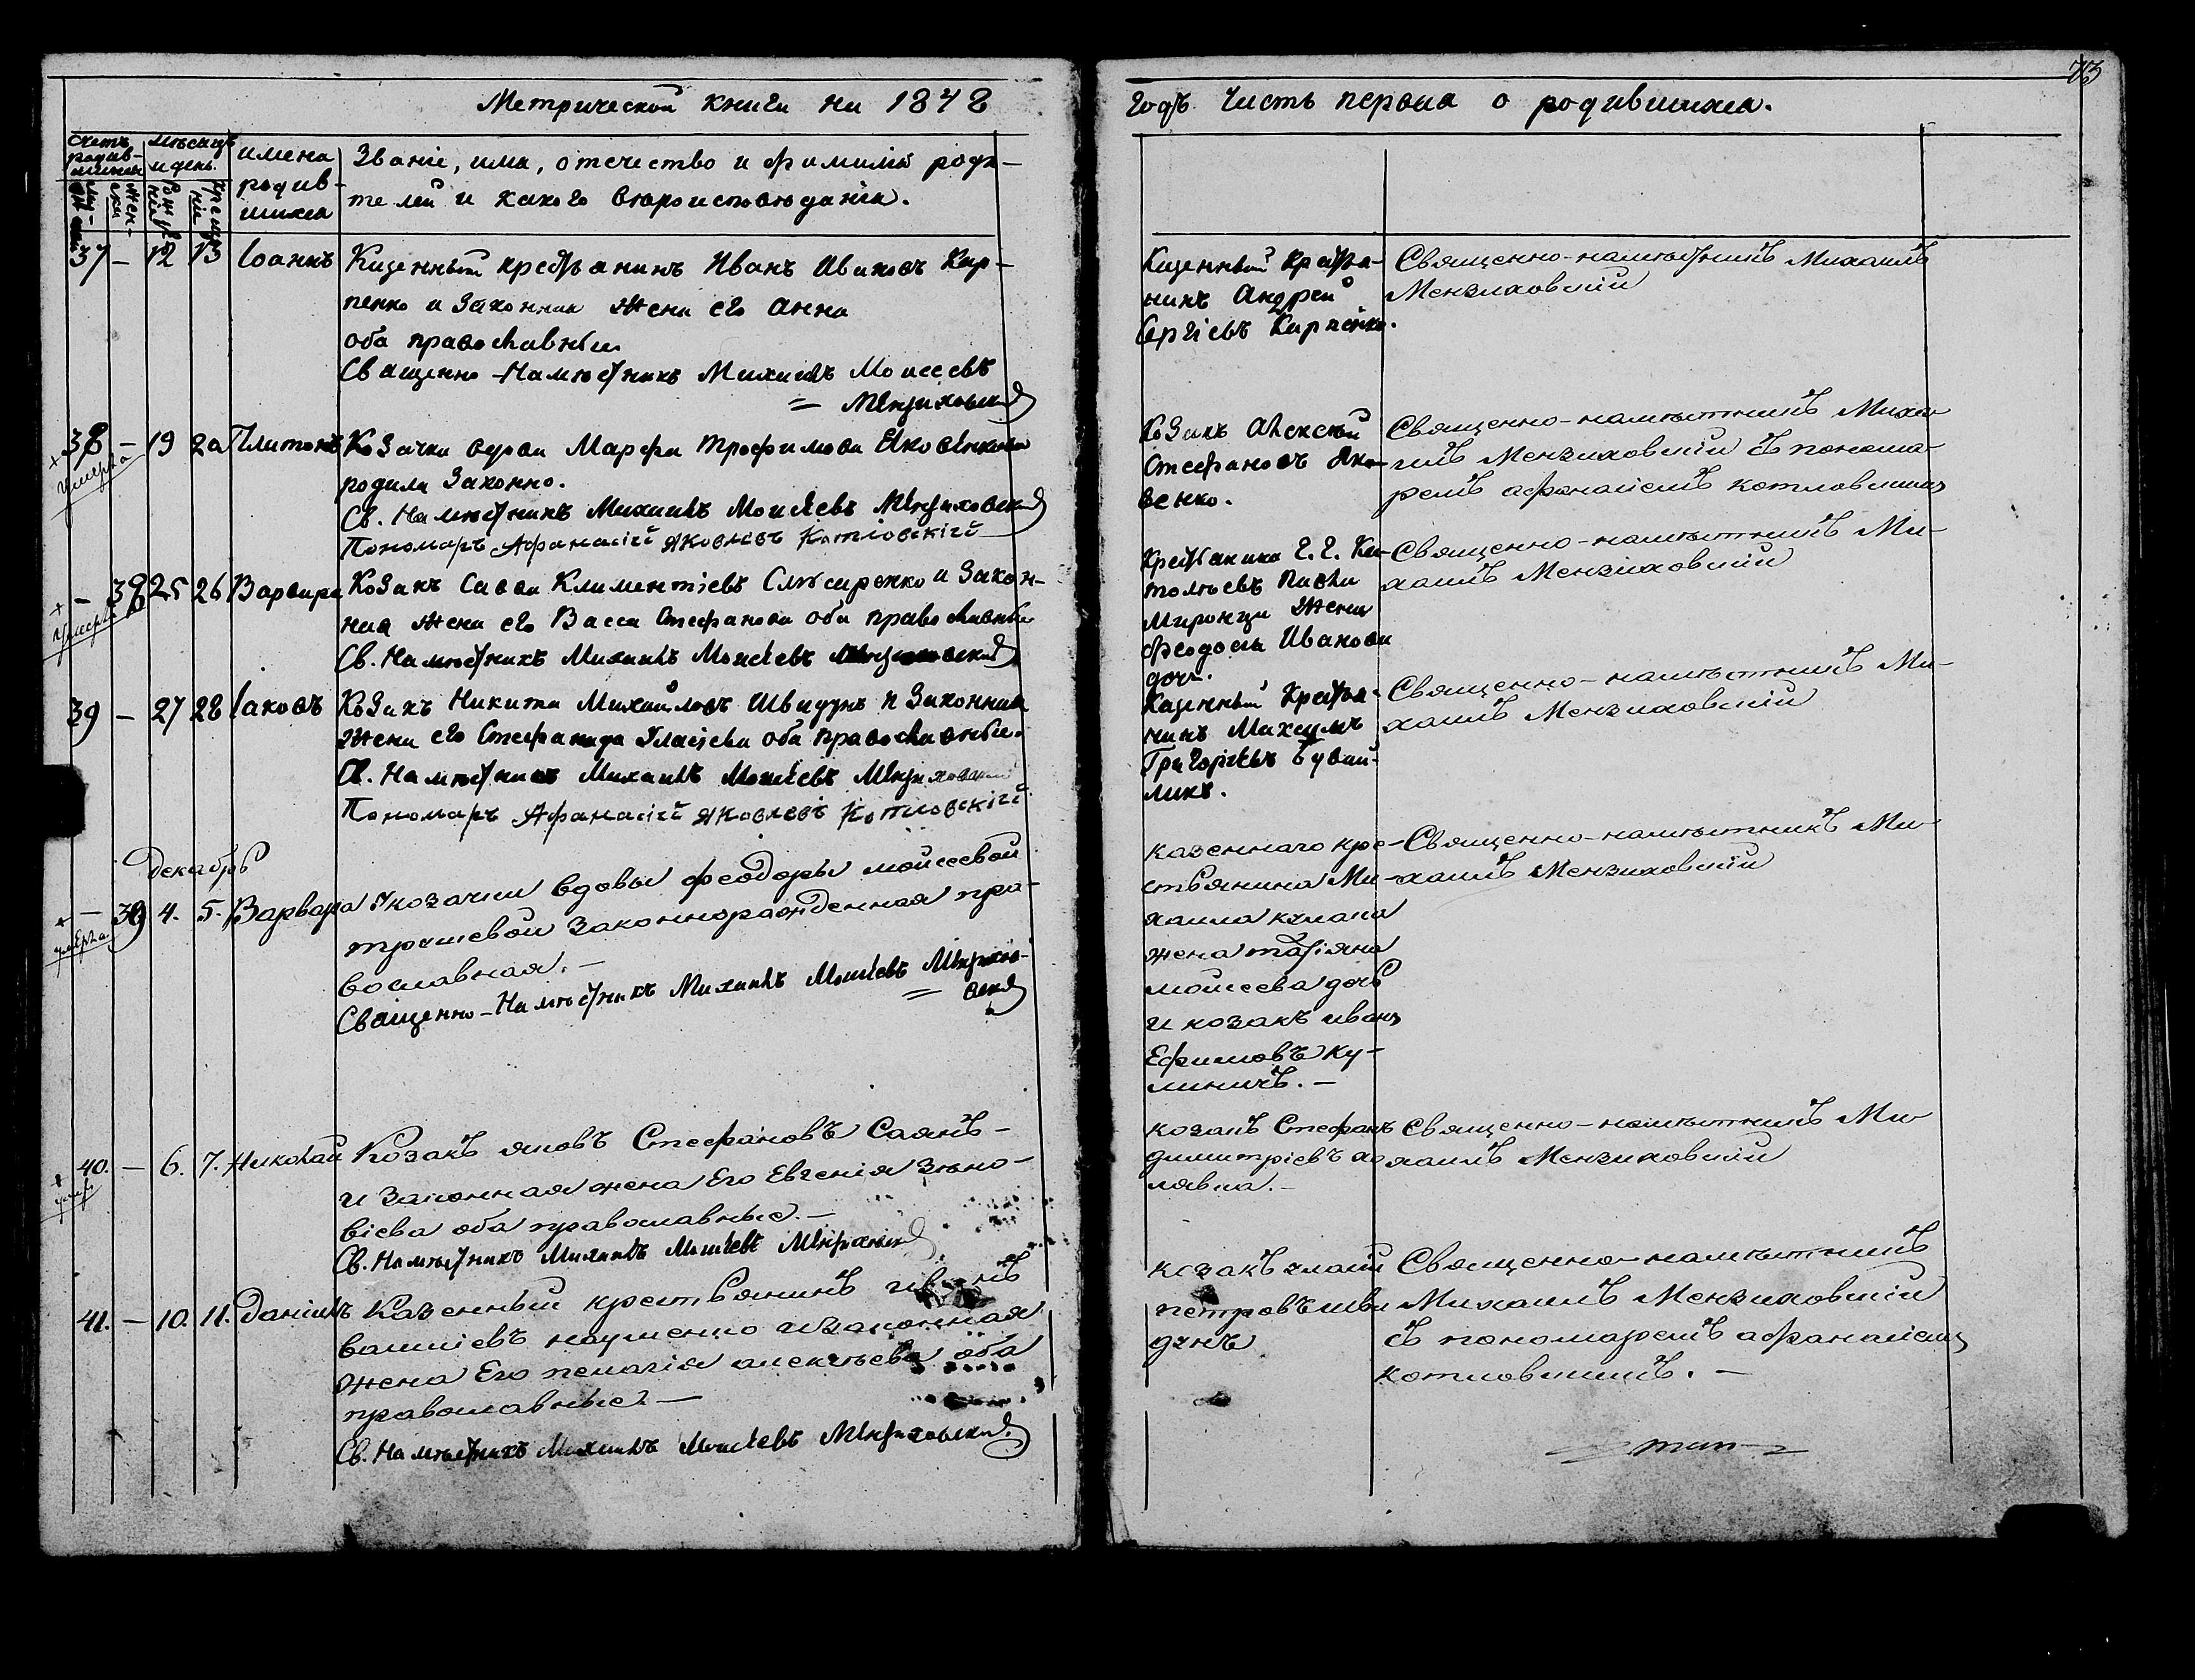 73
Метрической книги на 1848
годъ. Часть первая о родившихся.
Счетъ родив-шихся
Мѣсяцъ и день.
имена
родив-
шихся
Званіе, имя, отечество и фамилия роди-
телей и какого вѣроисповѣданія.
37 – 12 13 Іоаннъ Казенный крестьянинъ Иванъ Ивановъ Кар-
пенко и Законная Жена его Анна
оба православныи
Священно-Намѣстникъ Михаилъ Моисеевъ
= Мензиховский
Казенный Крестья-
нинъ Андрей
Сергіевъ Карпенко.
Священно-намѣстникъ Михаилъ
Мензиховскій
+ умерла
38 – 19 20 Платонъ Козачки вдови Марфи Трофимови Яковенкови
родила Законно.
Св. Намѣстникъ Михаилъ Моисеевъ Мензиховский
Пономаръ Афанасій Яковлевъ Котловскій
Козакъ Алексѣй
Стефановъ Яко-
венко.
Священно-намѣстникъ Миха-
илъ Мензиховскій съ понома-
ремъ афанасіемъ котловскимъ
+ умерла
– 38 25 26 Варвара Козакъ Савва Климентіевъ Слѣсаренко и Закон-
ная Жена его Васса Стефанова оба православныи
Св. Намѣстникъ Михаилъ Моисеевъ Мензиховский
Крестьянина Г. Г. Ка-
толѣевъ Павла
Миронци Жена
Феодосия Иванови
дочь.
Священно-намѣстникъ Ми-
хаилъ Мензиховскій
39 – 27 28 Іаковъ Козакъ Никита Михайловъ Швидунъ и Законная
Жена его Стефанида Власіева оба православныи.
Св. Намѣстникъ Михаилъ Моисеевъ Мензиховский
Пономаръ Афанасій Яковлевъ Котловскій
Казенный Крестья-
нинъ Максимъ
Григоріевъ Бувай-
ликъ.
Священно-намѣстникъ Ми-
хаилъ Мензиховскій
Декабрь
+ умерла
– 39 4. 5. Варвара У козачки вдовы феодоры мойсеевой
законнорожденная пра-
вославная. –
Священно-Намѣстникъ Михаилъ Моисеевъ Мензихов-
= ский
казеннаго кре-
стьянина Ми-
хаила
жена татіяна
мойсеева дочь
и козакъ иванъ
Ефимовъ Ку-
линичъ. –
Священно-намѣстникъ Ми-
хаилъ Мензиховскій
+ умеръ
40. – 6. 7. Николай Козакъ яковъ Стефановъ Саянъ –
и законная жена Его Евгенія Зѣно-
віева оба православные. –
Св. Намѣстникъ Михаилъ Моисеевъ Мензиховский
козакъ Стефанъ
димитріевъ хо
лявка. –
Священно-намѣстникъ Ми
хаилъ Мензиховскій
41. – 10. 11. Даніилъ Казенный крестьянинъ иванъ
василіевъ науменко и законная
жена Его пелагія алексѣева оба
православные. –
Св. Намѣстникъ Михаилъ Моисеевъ Мензиховский.
козакъ
петровъ шви
дунъ
Священно-намѣстникъ
Михаилъ Мензиховскій
съ пономаремъ афанасіемъ
котловскимъ. –